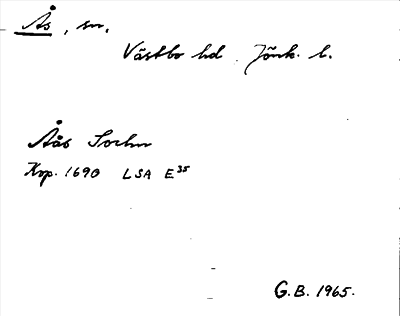 Ås, sn.
Västbo hd. Jönk. l.
Åås Sochn
Kop. 1690 LSA E³⁵
G.B. 1965.